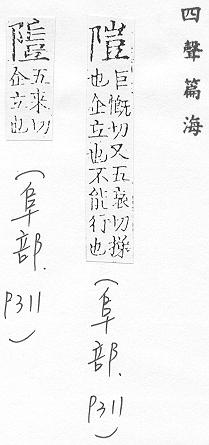 四聲篇海
隑
巨慨切又五哀切梯
也企立也不能行也
（阜部.P311）
五来切
企立也
（阜部.P311）